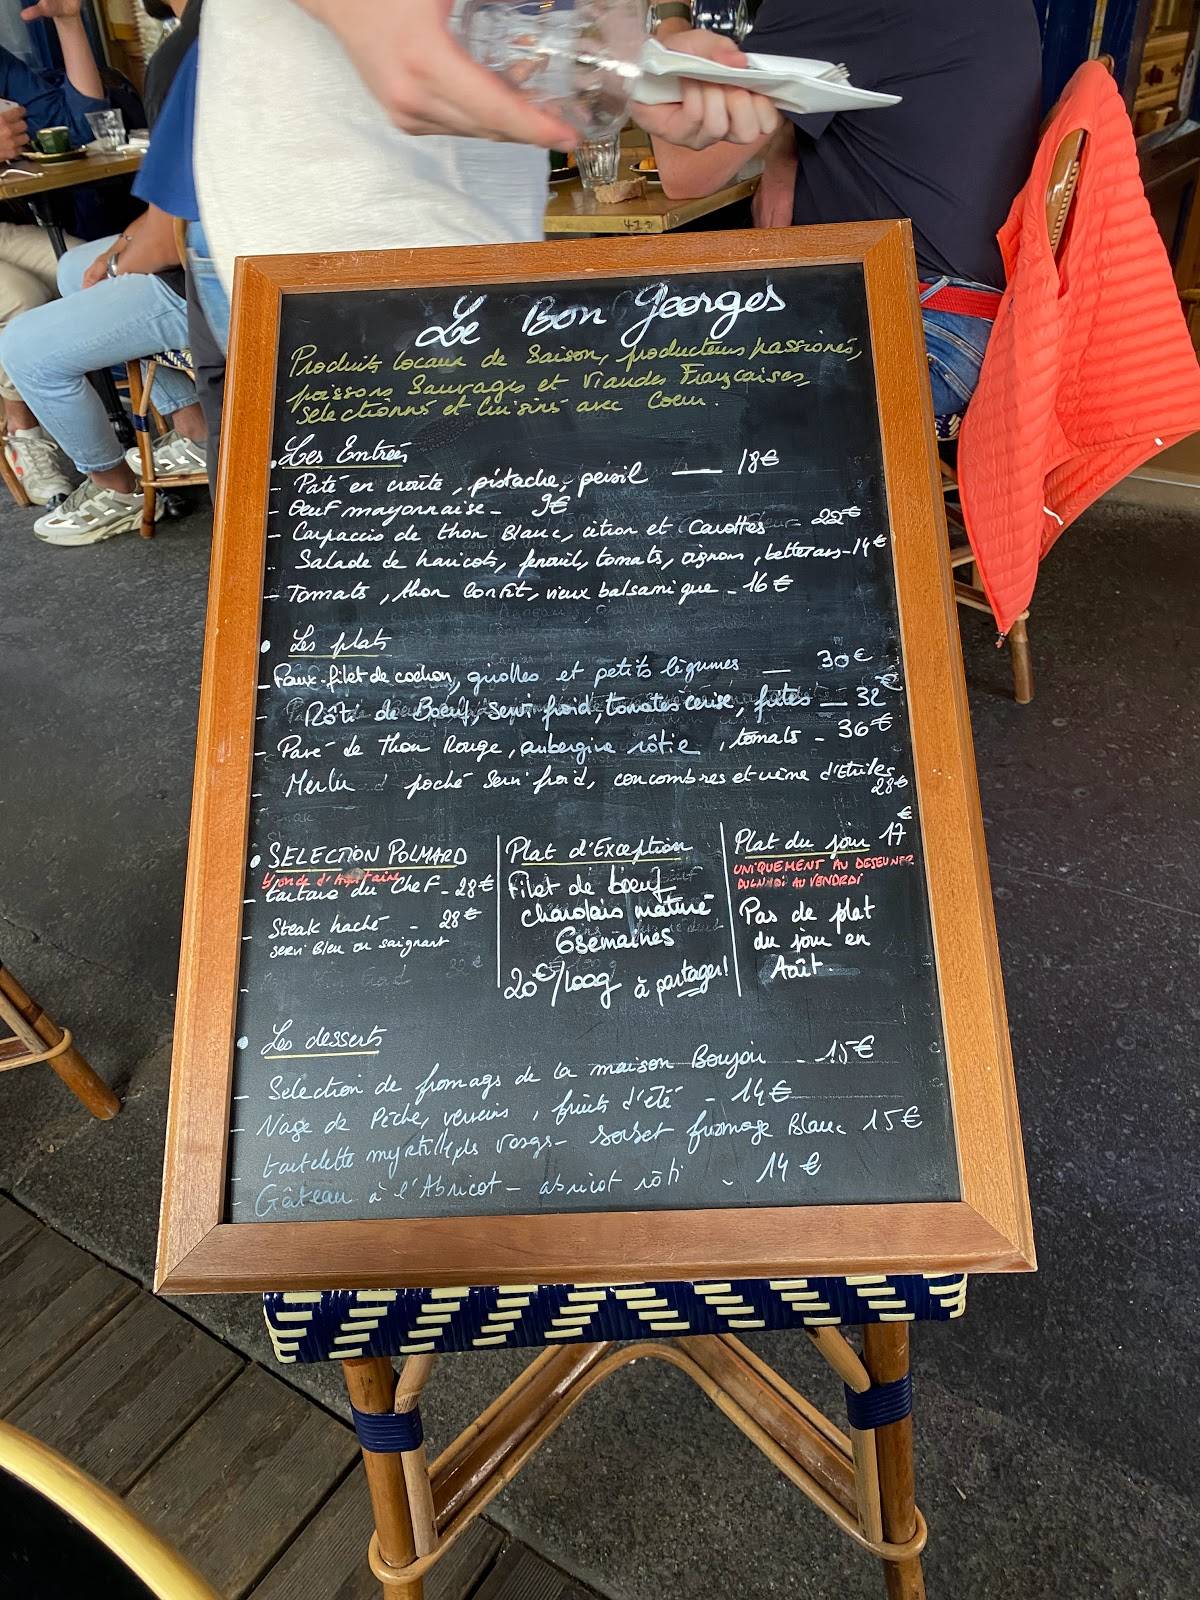 Le Bon Georges
Produits locaux de Saison, producteurs passionnés,
poissons Sauvages et Viandes Françaises,
Selectionnés et Cuisinés avec Coeur.
• Les Entrées
- Paté en croûte, pistache, persil — 18€
- Oeuf mayonnaise - 9€
- Carpaccio de thon Blanc, citron et Carottes - 22€
- Salade de haricots, fenouil, tomats, oignons, betteraves - 14€
- Tomats, thon Confit, vieux balsamique - 16€
• Les plats
- Faux-filet de cochon, girolles et petits légumes — 30€
- Rôti de Boeuf, Servi froid, tomates cerise, frites — 32€
- Pavé de thon Rouge, aubergine rôtie, tomats - 36€
- Merlu poché Servi froid, concombres et crème d'Etrilles
28€
• SELECTION POLMARD
Blonde d'Aquitaine
- tartare du CheF - 28€
- Steak haché - 28€
servi Bleu ou saignant
Plat d'Exception
Filet de boeuf
charolais maturé
6 semaines
20€/100g à partager!
Plat du jour 17€
UNIQUEMENT AU DEJEUNER
DU LUNDI AU VENDREDI
Pas de plat
du jour en
Août
• Les desserts
- Sélection de fromages de la maison Bouyoir - 15€
- Nage de Pêche, verveine, fruits d'été - 14€
- tartelette myrtilles des vosges - Sorbet fromage Blanc 15€
- Gâteau à l'Abricot - abricot rôti - 14€